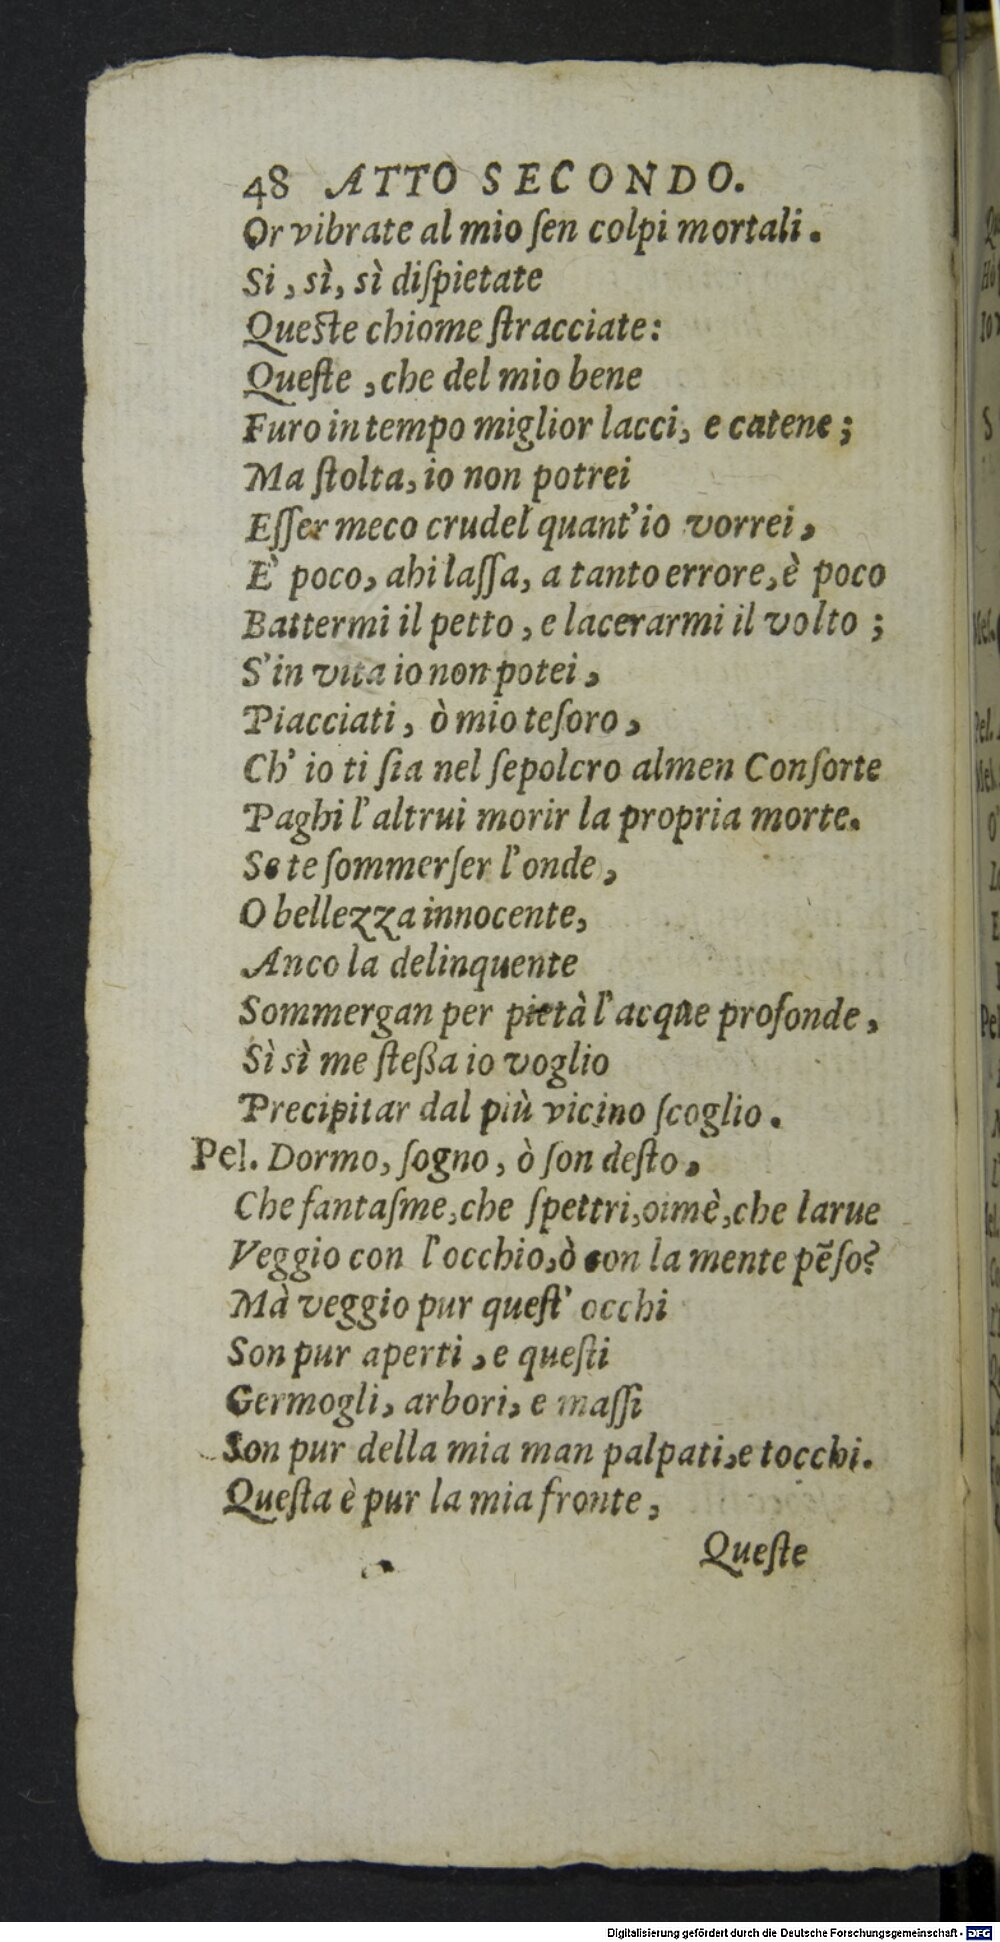 48 ATTO SECONDO.
Or vibrate al mio ſen colpi mortali.
Si, sì, sì diſpietate
Queſte chiome ſtracciate:
Queſte, che del mio bene
Furo in tempo miglior lacci, e catene;
Ma ſtolta, io non potrei
Eſſer meco crudel quant'io vorrei,
E' poco, ahi laſſa, a tanto errore, è poco
Battermi il petto, e lacerarmi il volto;
S'in vita io non potei,
Piacciati, ò mio teſoro,
Ch' io ti ſia nel ſepolcro almen Conſorte
Paghi l'altrui morir la propria morte.
Se te ſommerſer l'onde,
O bellezza innocente,
Anco la delinquente
Sommergan per pietà l'acque profonde,
Sì sì me ſteßa io voglio
Precipitar dal più vicino ſcoglio.
Pel. Dormo, ſogno, ò ſon deſto.
Che fantaſme, che ſpettri, oimè, che larue
Veggio con l'occhio, ò con la mente pẽſo?
Mà veggio pur queſt' occhi
Son pur aperti, e queſti
Germogli, arbori, e maſſi
Son pur della mia man palpati, e tocchi.
Queſta è pur la mia fronte,
Queſte
Digitalisierung gefördert durch die Deutsche Forschungsgemeinschaft - DFG